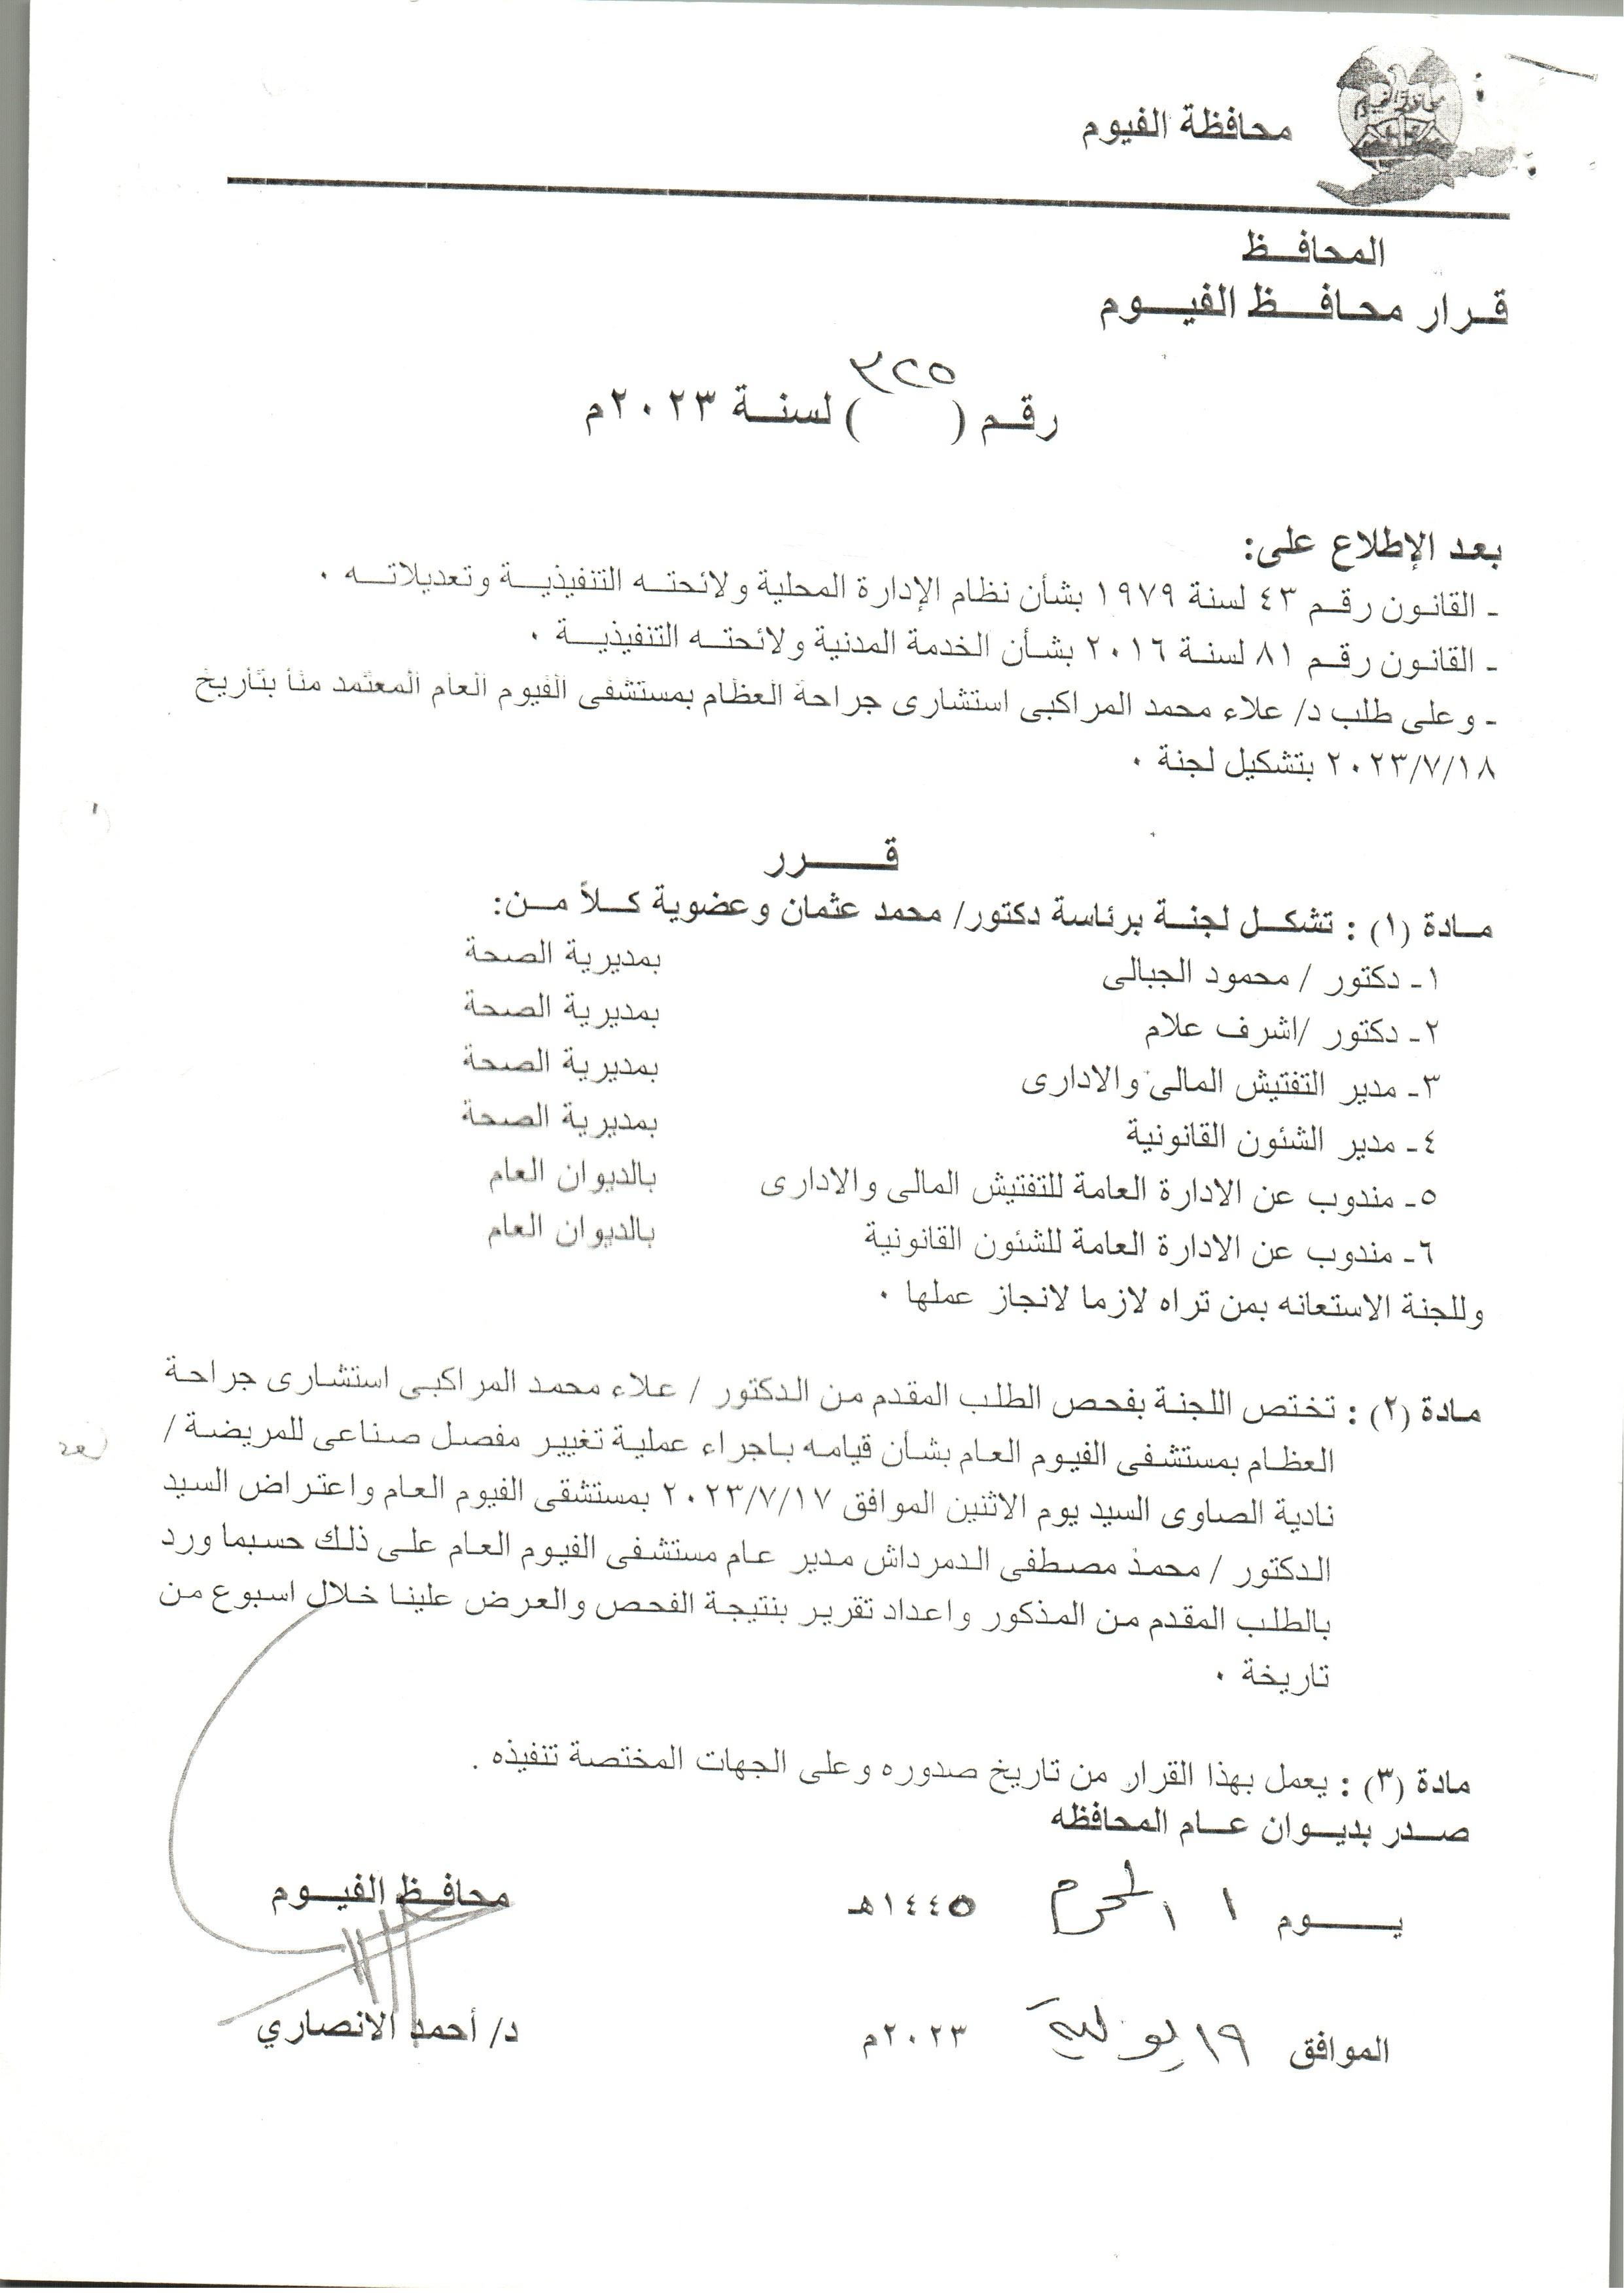 محافظة الفيوم
محافظة الفيوم
المحافـــظ
قـرار محافـــظ الفيـــوم
رقــم ( ٣٢٥ ) لسنــة ٢٠٢٣م
بعد الإطلاع على:
- القانون رقـم ٤٣ لسنة ١٩٧٩ بشأن نظام الإدارة المحلية ولائحتـه التنفيذيــة وتعديلاتــه .
- القانون رقـم ٨١ لسنـة ٢٠١٦ بشـأن الخدمة المدنية ولائحتـه التنفيذيــة .
- وعلى طلب د/ علاء محمد المراكبى استشارى جراحة العظام بمستشفى الفيوم العام المعتمد منا بتاريخ
٢٠٢٣/٧/١٨ بتشكيل لجنة .
قـــــرر
مـادة (١) : تشكـــل لجنــة برئاسة دكتور/ محمد عثمان وعضوية كـــلاً مــن:
١- دكتور / محمود الجبالى بمديرية الصحة
٢- دكتور /اشرف علام بمديرية الصحة
٣- مدير التفتيش المالى والادارى بمديرية الصحة
٤- مدير الشئون القانونية بمديرية الصحة
٥- مندوب عن الادارة العامة للتفتيش المالى والادارى بالديوان العام
٦- مندوب عن الادارة العامة للشئون القانونية بالديوان العام
وللجنة الاستعانه بمن تراه لازما لانجاز عملها .
مـادة (٢) : تختص اللجنة بفحص الطلب المقدم من الدكتور / علاء محمد المراكبى استشارى جراحة
العظام بمستشفى الفيوم العام بشأن قيامه باجراء عملية تغيير مفصل صناعى للمريضة /
نادية الصاوى السيد يوم الاثنين الموافق ٢٠٢٣/٧/١٧ بمستشقى الفيوم العام واعتراض السيد
الدكتور / محمد مصطفى الدمرداش مدير عام مستشفى الفيوم العام على ذلك حسبما ورد
بالطلب المقدم من المذكور واعداد تقرير بنتيجة الفحص والعرض علينا خلال اسبوع من
تاريخة .
مادة (٣) : يعمل بهذا القرار من تاريخ صدوره وعلى الجهات المختصة تنفيذه .
صــدر بديــوان عــام المحافظه
يــــوم ١ المحرم ١٤٤٥هـ
محافــظ الفيـــوم
الموافق ١٩ يوليه ٢٠٢٣م
د/ أحمد الانصاري